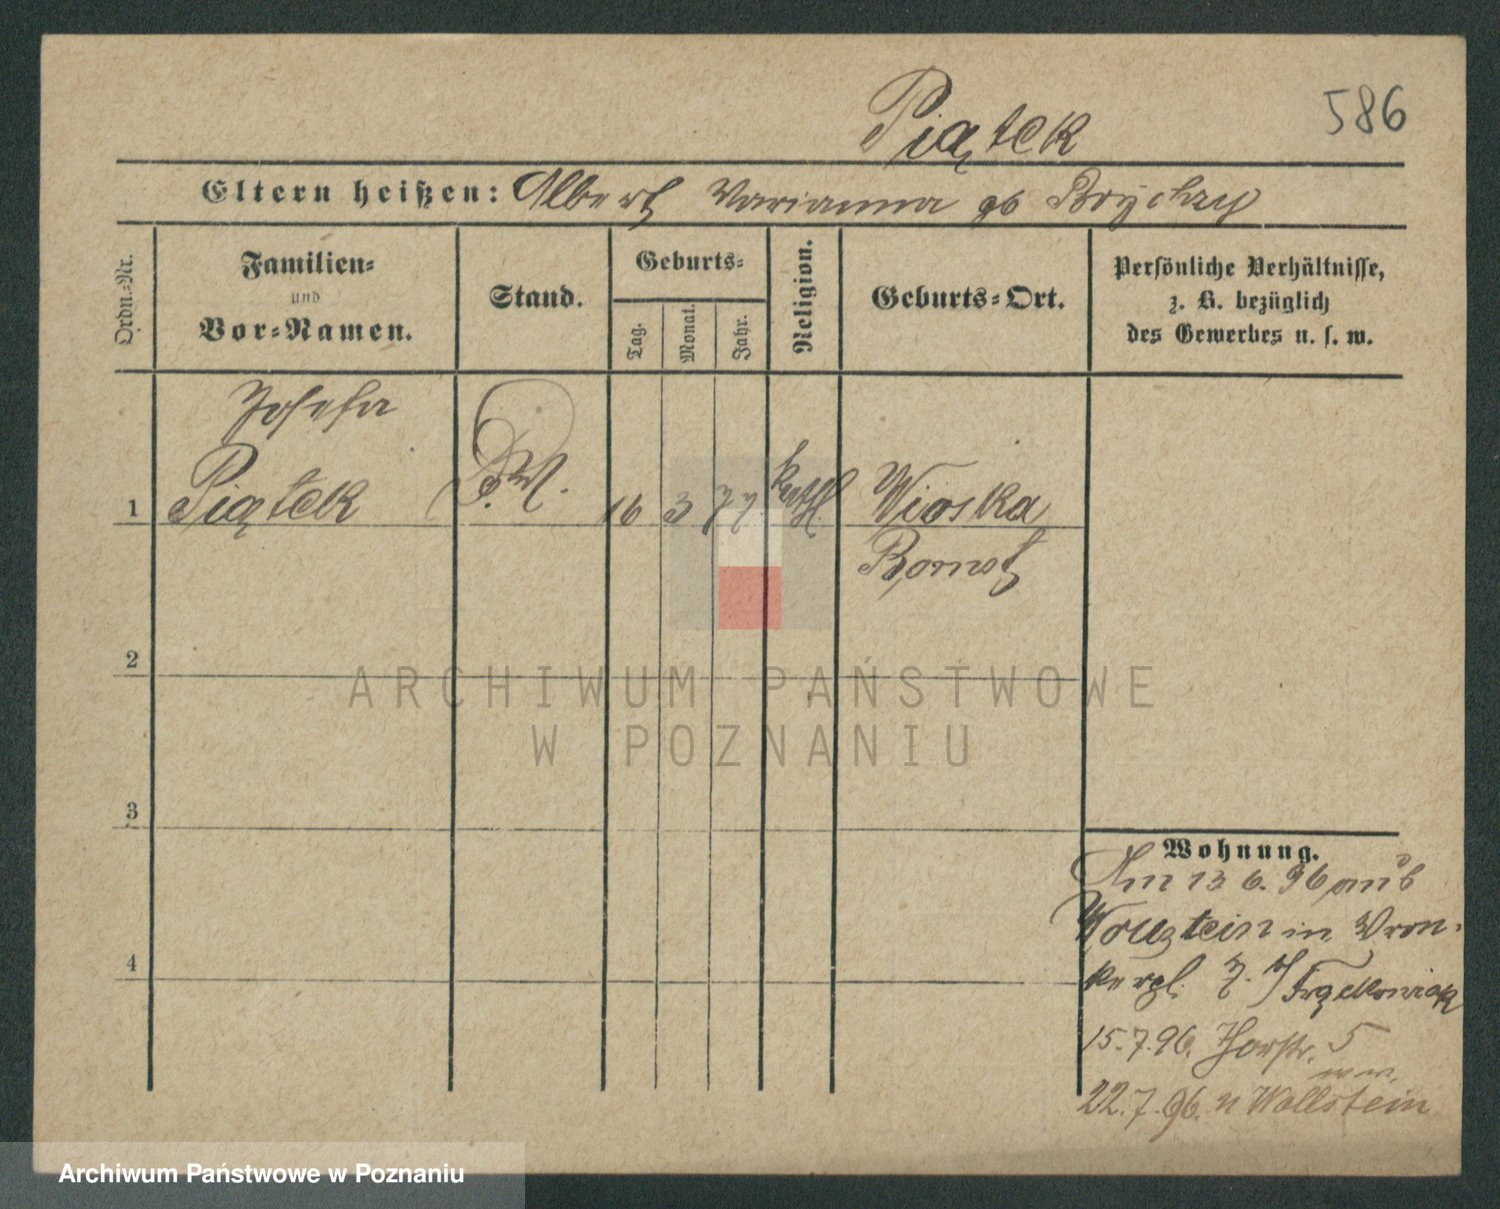 586
Piątek
Eltern heißen: Albert Marianna gb Brychzy
Ordn.-Nr.
Familien-
und
Vor-Namen.
Stand.
Geburts-
Tag.
Monat.
Jahr.
Religion.
Geburts-Ort.
Persönliche Verhältnisse,
z. B. bezüglich
des Gewerbes u. s. w.
Josefa
1 Piątek 16 3 77 kathl. Wioska
Bomst
2
3
4
Wohnung.
Am 13 6. 96 aus
Wollstein in Wron-
kerpl. 7.
15.7.96. 5
22.7.96. n Wollstein
ARCHIWUM PAŃSTWOWE
W POZNANIU
Archiwum Państwowe w Poznaniu